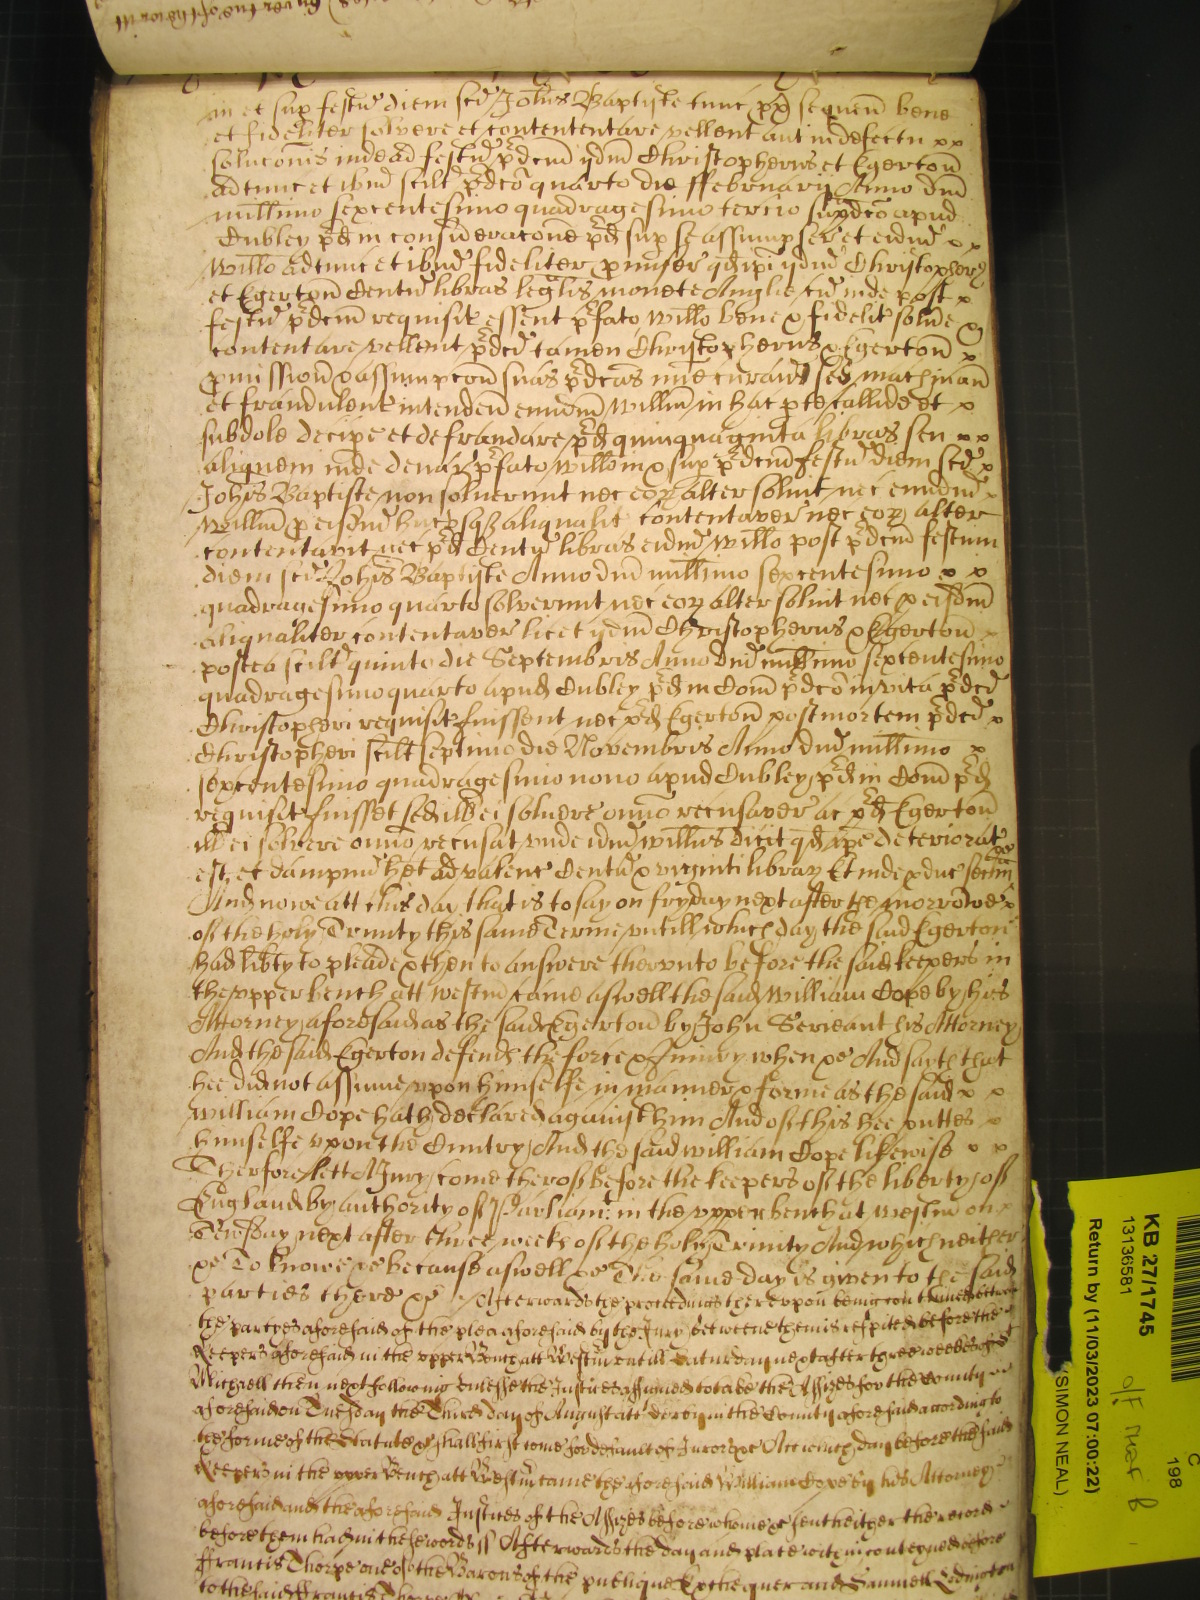 in et sup festū diem scī Joħis Baptiste tunc px̄ sequen̄ bene
et fideliter solvere et contententare vellent aut in defectu xx
soluconis inde ad festū p̄dcm̄ ijdm̄ Christopherus et Egerton̄
adtunc et ibm̄ scilt p̄dco quarto die ffebruarij Anno dn̄i
millimo sexcentesimo quadragesimo tercio sup̄dco apud
Cubley p̄d in consideracone p̄d sup se assumpser̄ et eidm̄ x x
Willo adtunc et ibm̄ fideliter promiser̄ qd ipi ijdm̄ Christopherus
et Egerton̄ Centū libras legalis monete Anglie cū inde post x
festū p̄dcm̄ requisit essent p̄fato Willo bene & fidelit solve &
contentare vellent p̄dcī tamen Christopherus & Egerton̄ x
pmission̄ & assumpcon̄ suas p̄dcas mīe curan̄ sed machinan̄
et fraudulent intenden̄ eundm̄ Willm̄ in hac pte callide et x
subdole decipe et defraudare p̄d quinquaginta libras seu xx
aliquem inde denar̄ p̄fato Willo in & sup p̄dcm̄ festū diem scī x
Joħis Baptiste non solverunt nec eoꝝ alter solvit nec eundm̄ x
Willm̄ p eisdm̄ hucusqꝫ aliqualit contentaver̄ nec eoꝝ alter
contentavit nec p̄d Centū libras eidm̄ Willo post p̄dcm̄ festum
diem scī Joħis Baptiste Anno dn̄i millimo sexcentesimo x x
quadragesimo quarto solverunt nec eoꝝ alter solvit nec p eisdm̄
aliqualiter contentaver̄ licet ijdm̄ Christopherus & Egerton̄ x
postea scilt quinto die Septembris Anno dn̄i millimo sexcentesimo
quadragesimo quarto apud Cubley p̄d in Com̄ p̄dco in vita p̄dcī
Christopheri requisit fuissent nec p̄d Egerton̄ post mortem p̄dcī x
Christopheri scilt septimo die Novembris Anno dn̄i millimo x
sexcentesimo quadragesimo nono apud Cubley p̄d in Com̄ p̄d
requisit fuisset sed ill ei solvere omīo recusaver̄ ac p̄d Egerton̄
ill ei solvere omīo recusat unde idm̄ Willus dicit qd ipe deteriorat
est et dampnū het ad valenc Centū & viginti libraꝝ Et inde pduc sectm̄ &c
And nowe att this day that is to say on fryday next after the morrowe x
of the holy Trinity this same Terme untill which day the said Egerton
had libty to pleade & then to answere thereunto before the said keepers in
the upper bench att westm̄ came aswell the said William Cope by his
Attorney aforesaid as the said Egerton by John Serieant his Attorney
And the said Egerton defends the force & Iniury when &c And saith that
hee did not assume upon himselfe in manner & forme as the said x x
William Cope hath declared against him And of this hee puttes x
himselfe upon the Cuntry And the said William Cope likewise x x
Therfore lett A Jury come therof before the keepers of the liberty of
England by authority of Parliam̄t in the upper bench at westm̄ on x
Tewsday next after three weeks of the holy Trinity And which neither
&c To knowe &c because aswell &c The same day is given to the said
parties there &c Afterwards the proceedings therevpon being continued betweene
the partyes aforesaid of the plea aforesaid by the Jury betweene them is respited before the
keepers aforesaid in the upper Bench att Westm̄ untill Saturday next after three weekes of St
Michaell then next following vnlesse the Justices assigned to take the Assizes for the County
aforesaid on Tuesday the Third day of August att Derby in the County aforesaid according to
the forme of the Statute &c shall first come for default of Jurors &c Att which day before the said
keepers in the upper Bench att Westm̄ came the aforesaid William Cope by his Attorney
aforesaid and the aforesaid Justices of the Assizes before whome &c sent heither there record
before them had in these words ss Afterwards the day and place within conteyned before
ffrancis Thorpe one of the Barons of the publique Exchequer and Samuell
to the said ffrancis Thorpe
KB 27/1745
13136581
Return by (11/03/2023 07:00:22)
(SIMON NEAL)
C
198